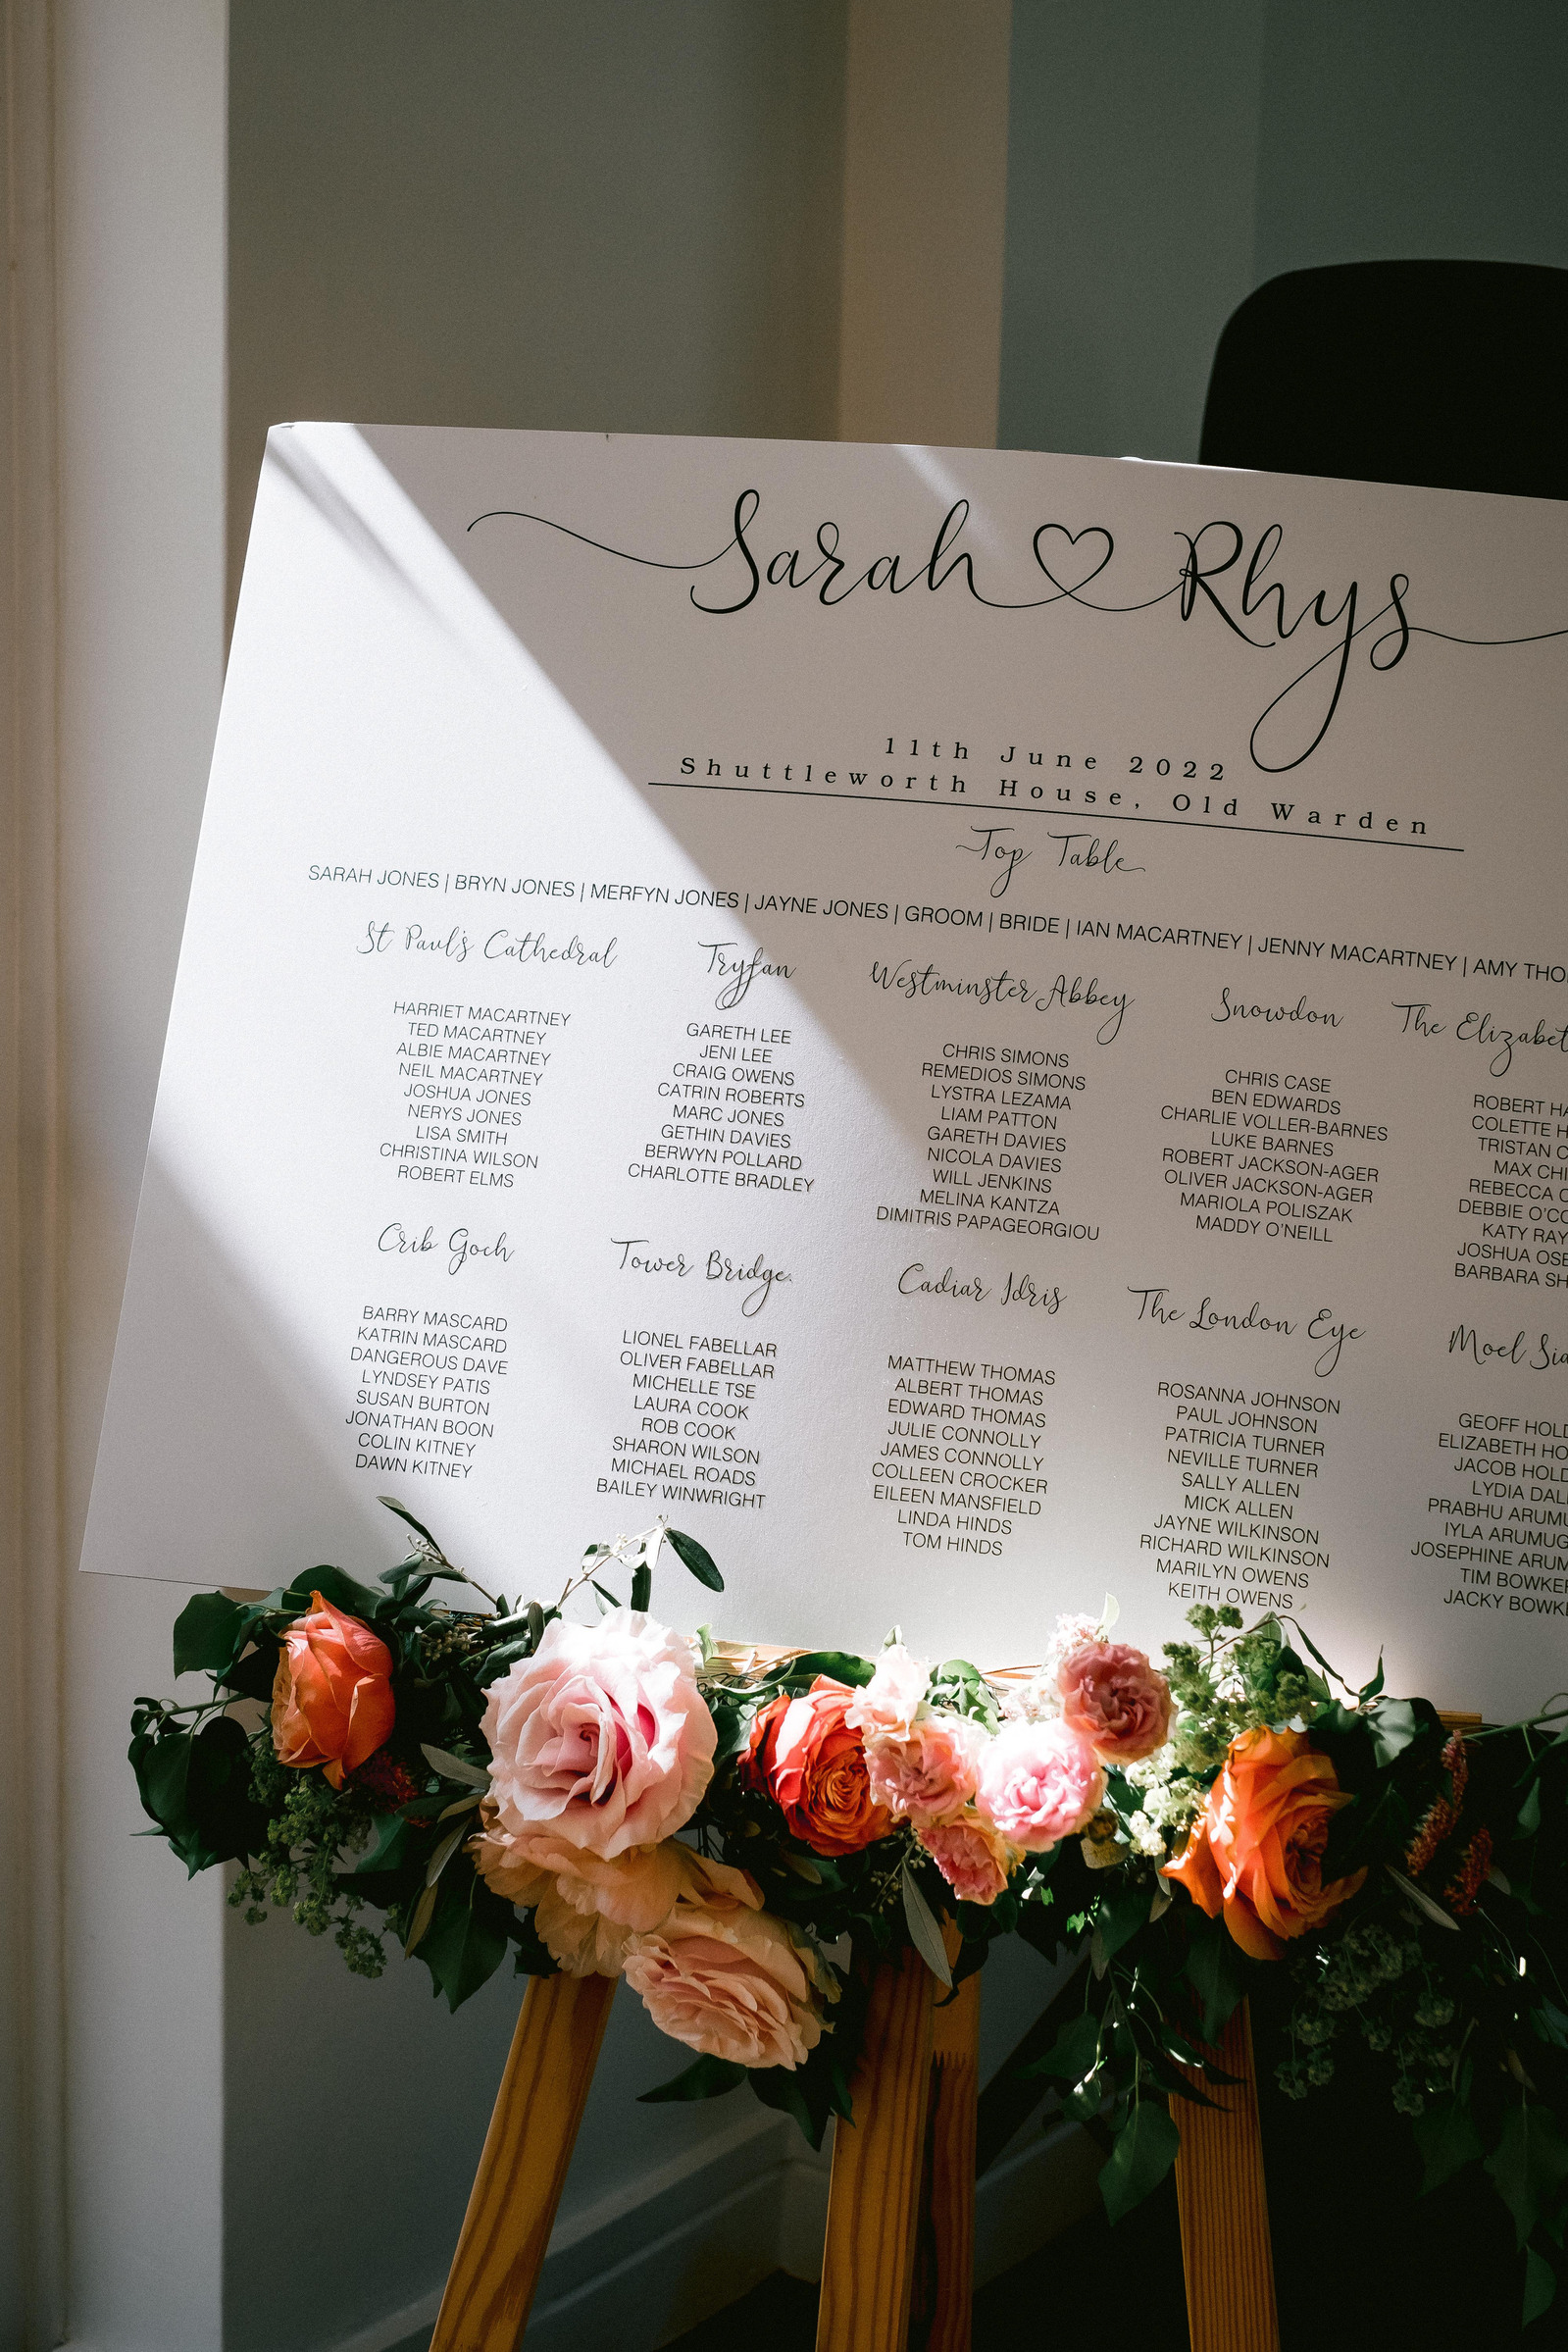 Sarah Rhys
11th June 2022
Shuttleworth House, Old Warden
Top Table
SARAH JONES | BRYN JONES | MERFYN JONES | JAYNE JONES | GROOM | BRIDE | IAN MACARTNEY | JENNY MACARTNEY | AMY THO
St Paul's Cathedral
HARRIET MACARTNEY
TED MACARTNEY
ALBIE MACARTNEY
NEIL MACARTNEY
JOSHUA JONES
NERYS JONES
LISA SMITH
CHRISTINA WILSON
ROBERT ELMS
Tryfan
GARETH LEE
JENI LEE
CRAIG OWENS
CATRIN ROBERTS
MARC JONES
GETHIN DAVIES
BERWYN POLLARD
CHARLOTTE BRADLEY
Westminster Abbey
CHRIS SIMONS
REMEDIOS SIMONS
LYSTRA LEZAMA
LIAM PATTON
GARETH DAVIES
NICOLA DAVIES
WILL JENKINS
MELINA KANTZA
DIMITRIS PAPAGEORGIOU
Snowdon
CHRIS CASE
BEN EDWARDS
CHARLIE VOLLER-BARNES
LUKE BARNES
ROBERT JACKSON-AGER
OLIVER JACKSON-AGER
MARIOLA POLISZAK
MADDY O'NEILL
The Elizabet
ROBERT HA
COLETTE H
TRISTAN C
MAX CHI
REBECCA C
DEBBIE O'CO
KATY RAY
JOSHUA OSB
BARBARA SH
Crib Goch
BARRY MASCARD
KATRIN MASCARD
DANGEROUS DAVE
LYNDSEY PATIS
SUSAN BURTON
JONATHAN BOON
COLIN KITNEY
DAWN KITNEY
Tower Bridge
LIONEL FABELLAR
OLIVER FABELLAR
MICHELLE TSE
LAURA COOK
ROB COOK
SHARON WILSON
MICHAEL ROADS
BAILEY WINWRIGHT
Cadiar Idris
MATTHEW THOMAS
ALBERT THOMAS
EDWARD THOMAS
JULIE CONNOLLY
JAMES CONNOLLY
COLLEEN CROCKER
EILEEN MANSFIELD
LINDA HINDS
TOM HINDS
The London Eye
ROSANNA JOHNSON
PAUL JOHNSON
PATRICIA TURNER
NEVILLE TURNER
SALLY ALLEN
MICK ALLEN
JAYNE WILKINSON
RICHARD WILKINSON
MARILYN OWENS
KEITH OWENS
Moel Sia
GEOFF HOLD
ELIZABETH HO
JACOB HOLD
LYDIA DAL
PRABHU ARUMU
IYLA ARUMUG
JOSEPHINE ARUM
TIM BOWKE
JACKY BOWK